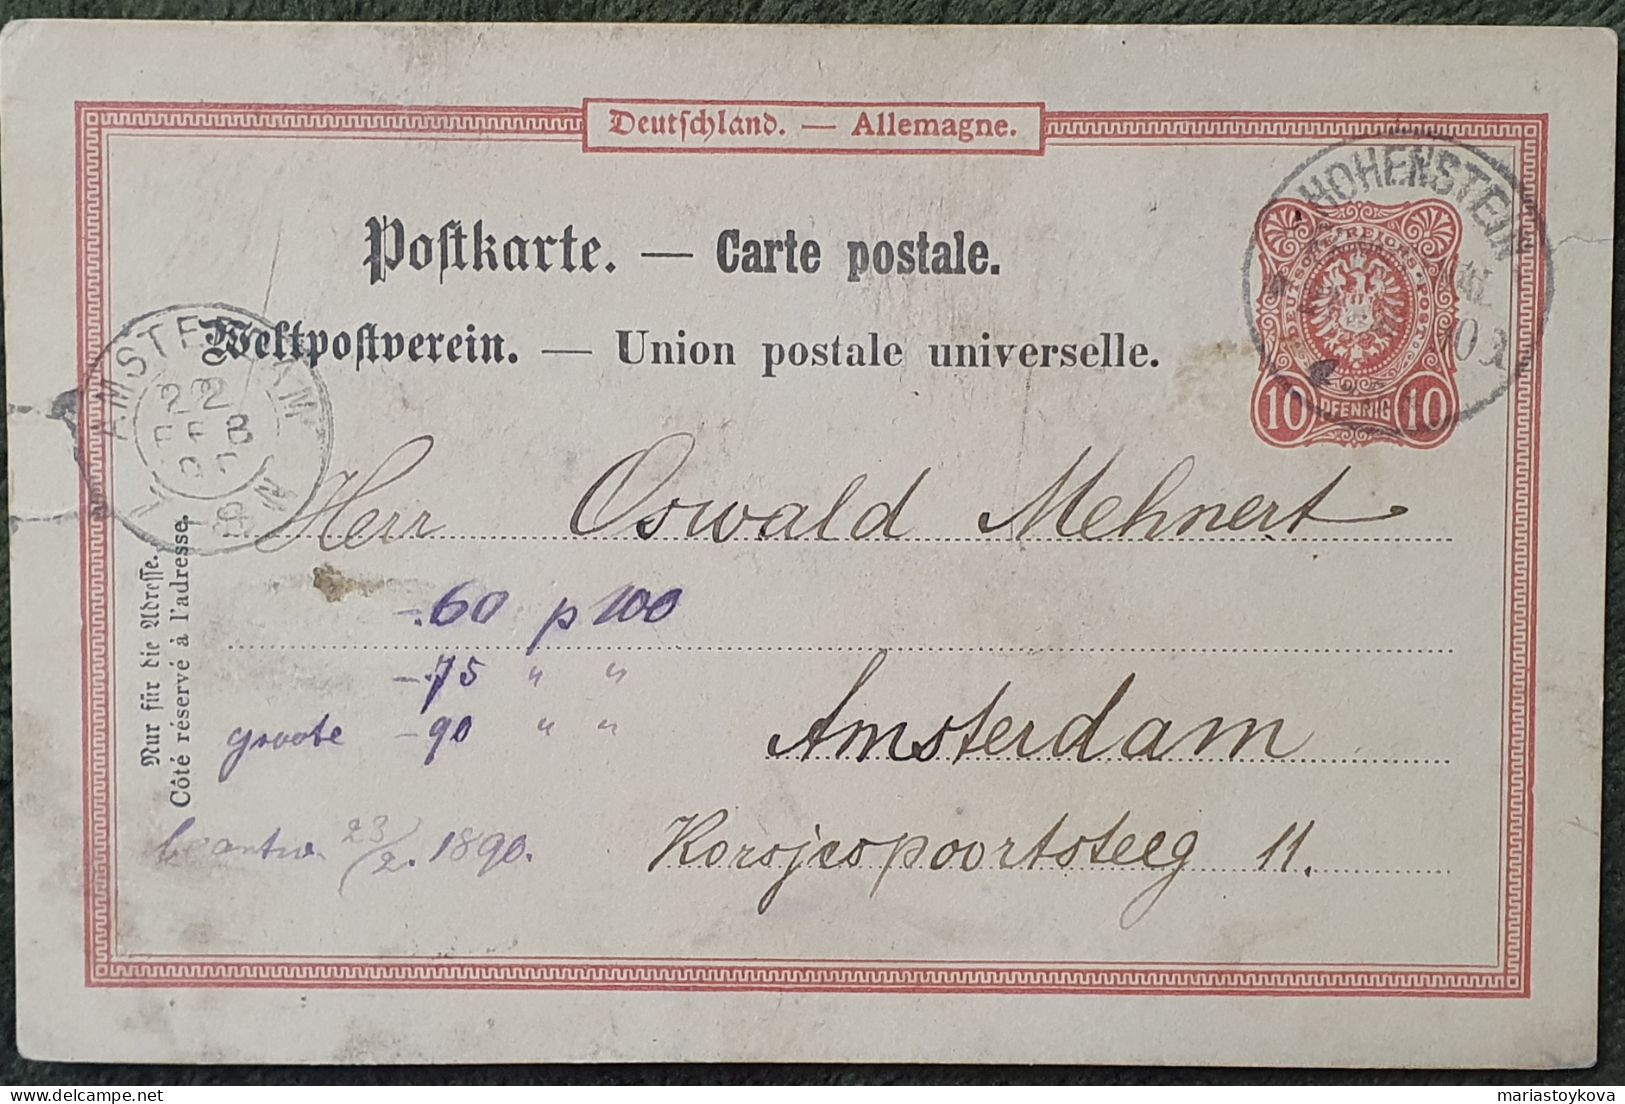 Deutschland. — Allemagne.
Postkarte. — Carte postale.
Weltpostverein. — Union postale universelle.
HOHENSTEIN
DEUTSCHE REICHS-POST
10 PFENNIG 10
AMSTERDAM
22
FEB
Herr Oswald Mehnert
-.60 p 100
-.75 " "
groote -90 " "
Amsterdam
Korsjespoortsteeg 11.
beantw. 23/2. 1890.
Nur für die Adresse.
Côté réservé à l'adresse.
mariastoykova